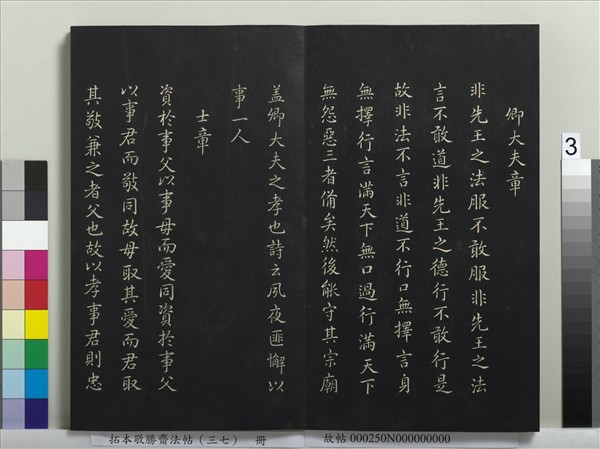 卿大夫章
非先王之法服不敢服非先王之法
言不敢道非先王之德行不敢行是
故非法不言非道不行口無擇言身
無擇行言滿天下無口過行滿天下
無怨惡三者備矣然後能守其宗廟
盖卿大夫之孝也詩云夙夜匪懈以
事一人
士章
資於事父以事母而愛同資於事父
以事君而敬同故母取其愛而君取
其敬兼之者父也故以孝事君則忠
3
拓本敬勝齋法帖(三七) 冊
故帖 000250N000000000